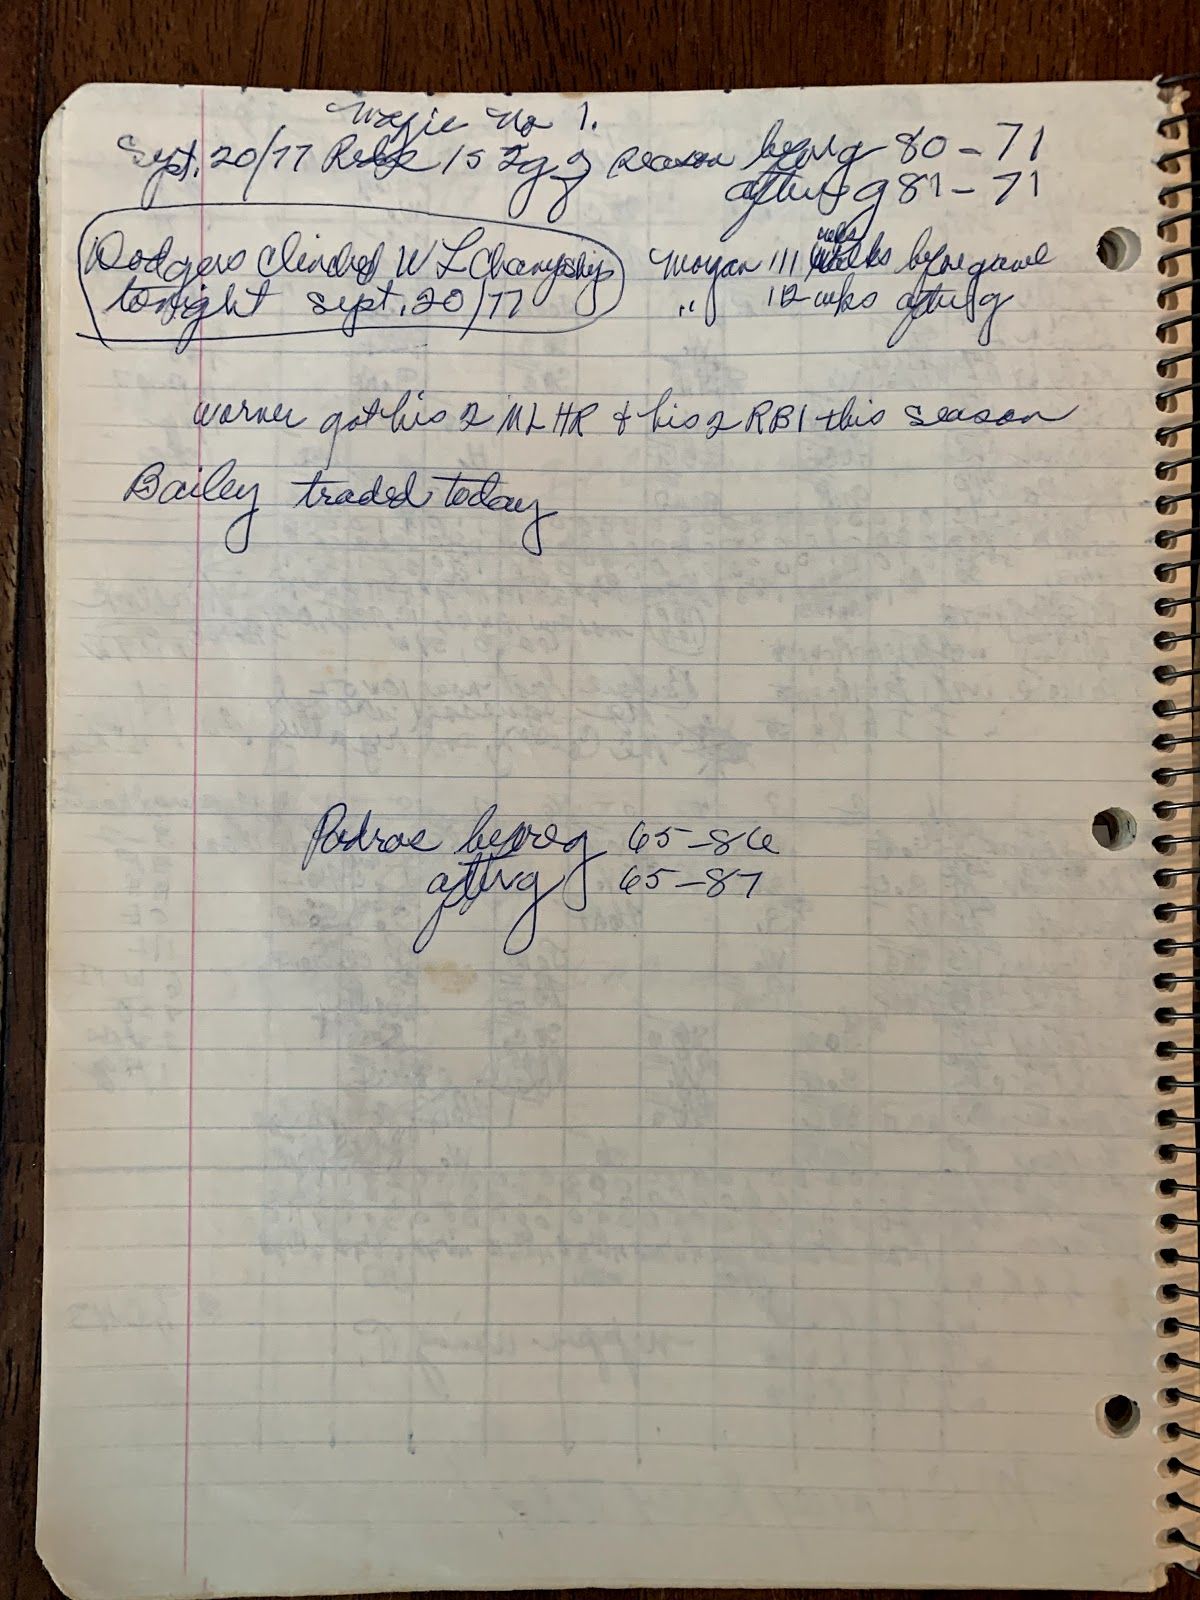 Magic No 1.
Sept. 20/77 Reds 152g of season before g 80-71
after g 81-71
Dodgers Clinched W L Champship
tonight Sept. 20/77
Morgan 111 walks before game
" 112 wks after g
Warner got his 2 ML HR & his 2 RBI this season
Bailey traded today
Padres before g 65-86
after g 65-87